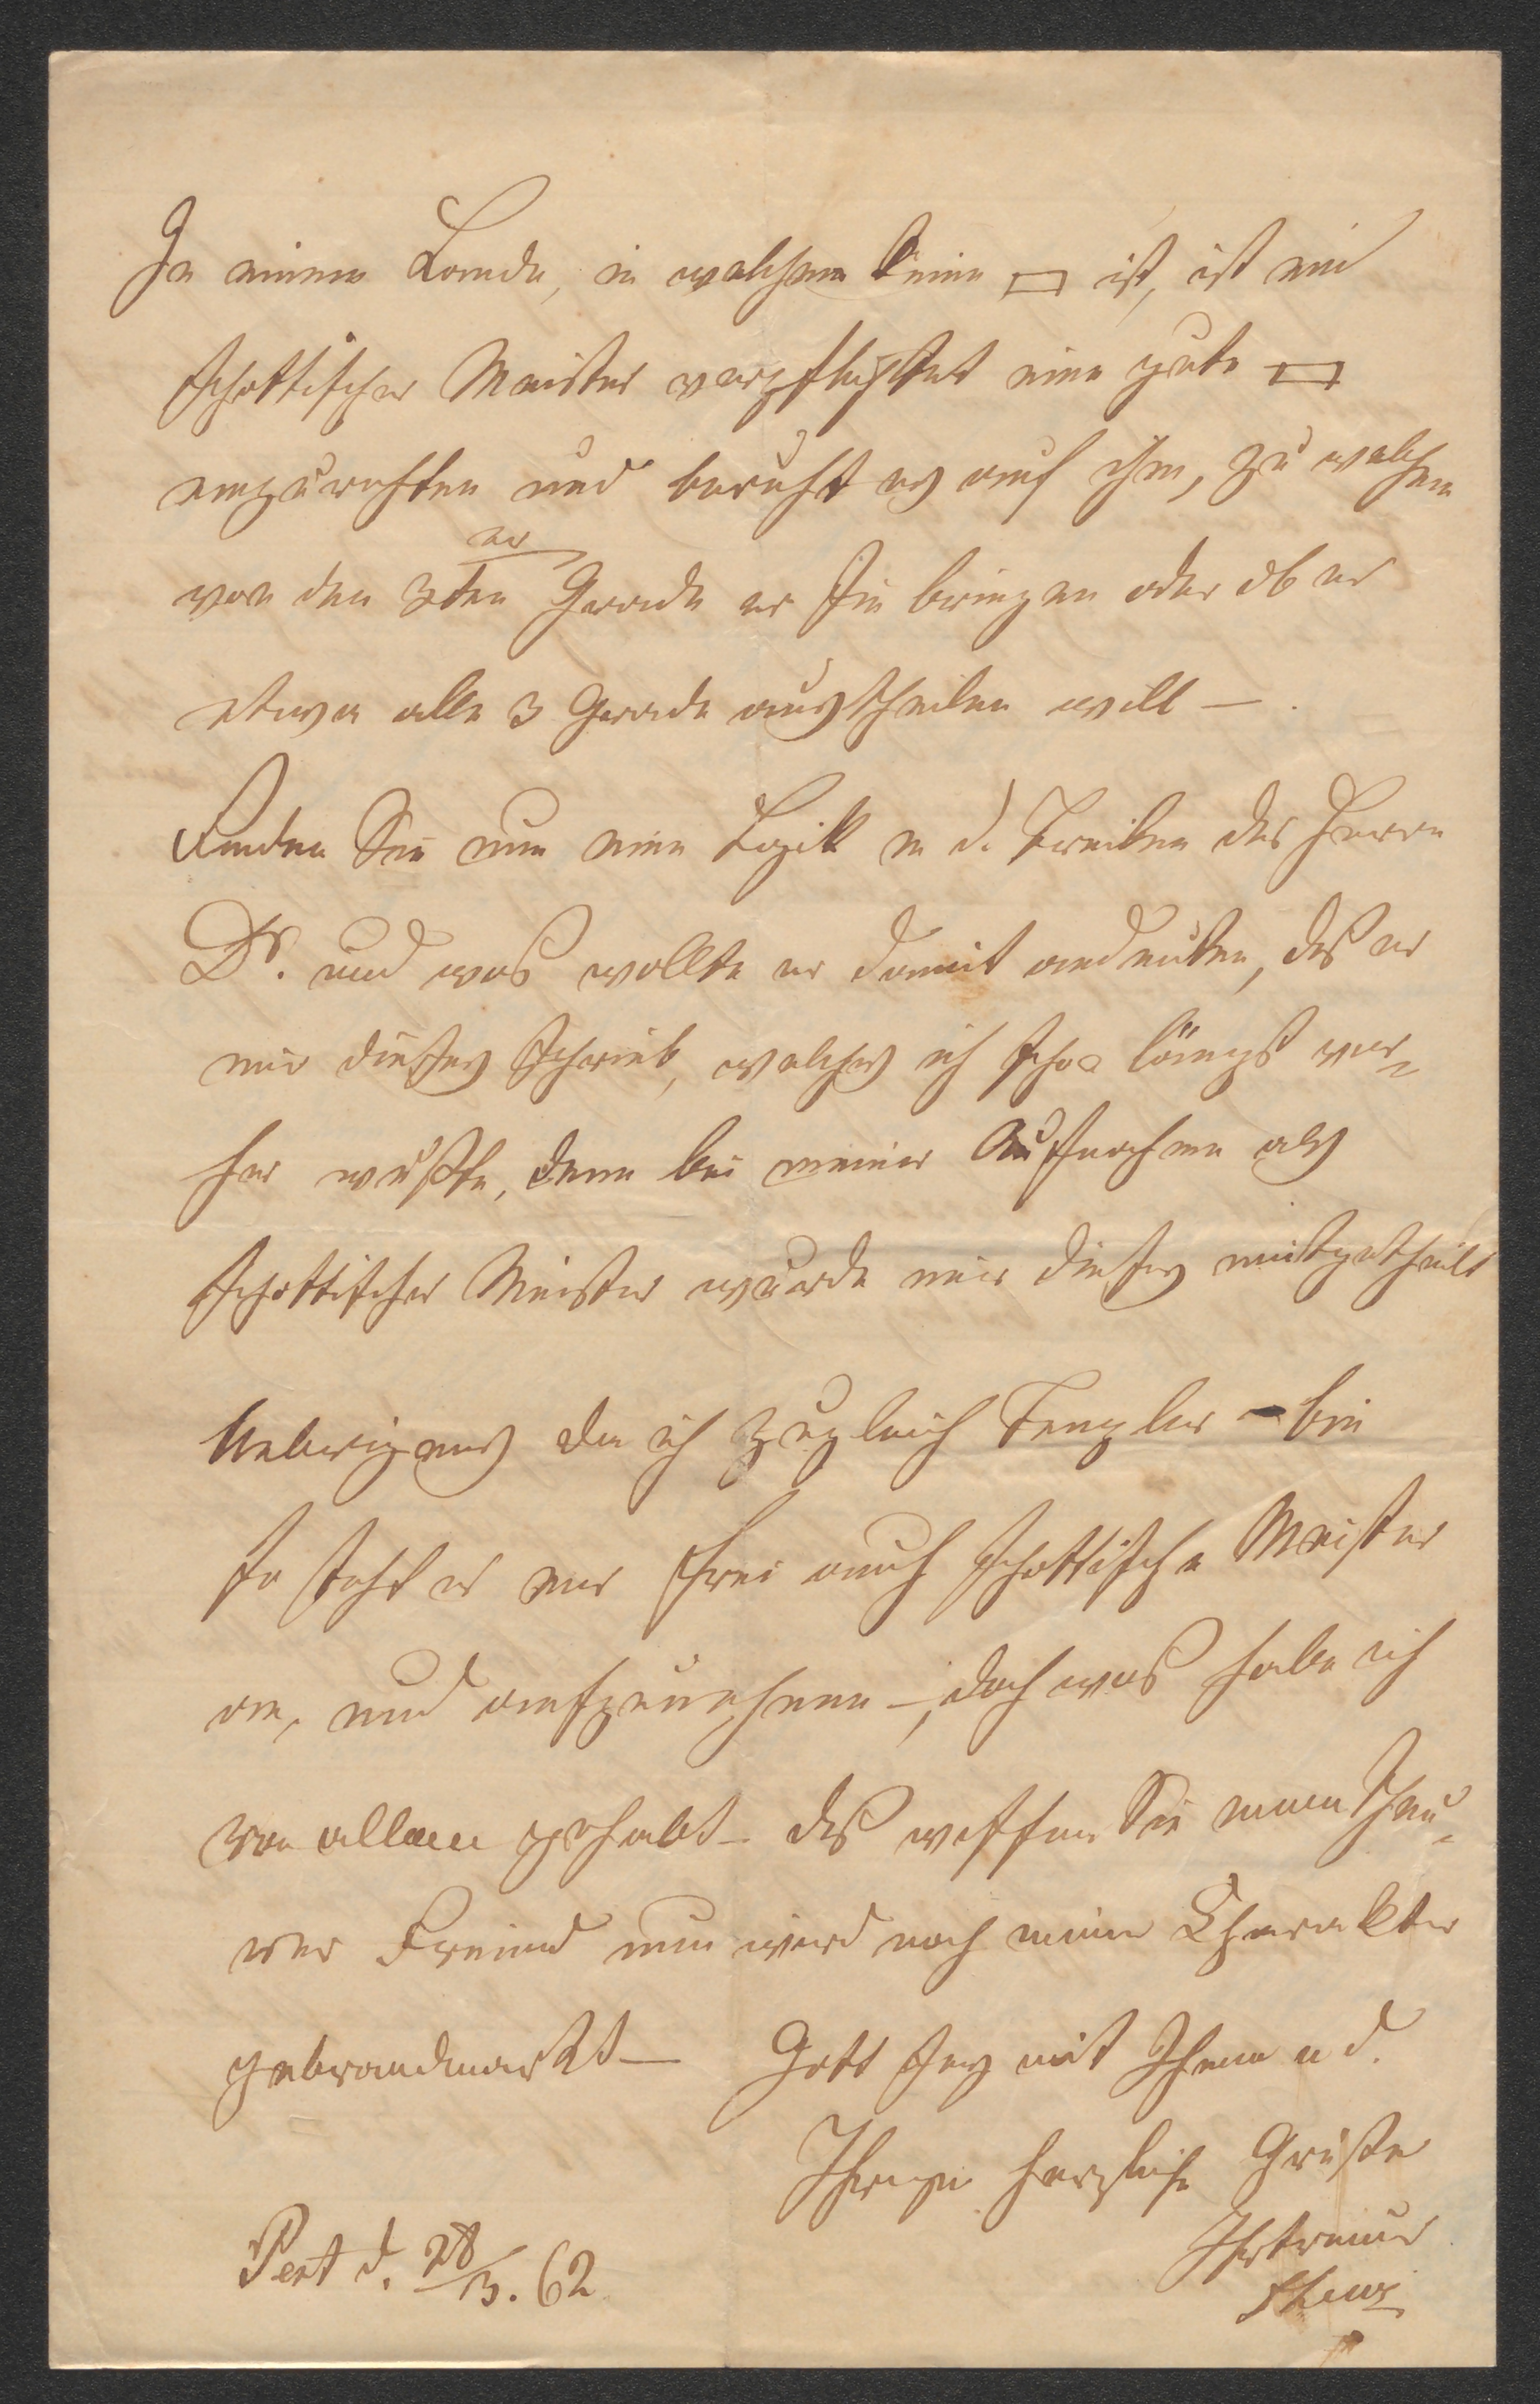 In einem Lande, in welchem keine ▭ ist, ist ein
schottischer Meister verpflichtet eine gute ▭
einzurichten und beruht es auf ihm, zu welchem
er
von den 3ten Grade er sie bringen oder ob er
etwa alle 3 Grade austheilen will —.
Finden Sie nun eine Logik in d. Treiben des Herrn
Dr. und was wollte er damit andeuten, daß er
mir dieses schrieb, welches ich schon längst vor-
her wußte, denn bei meiner Aufnahme als
schottischer Meister wurde mir dieses mitgetheilt
Uebrigens da ich zugleich Templer — bin
so steht es mir frei auch schottische Meister
an, und aufzunehmen —, doch was habe ich
von allem gehabt — das wissen Sie mein theu-
rer Freund nun wird noch mein Charakter
gebrandmarkt — Gott sey mit Ihnen u d.
Ihrigen herzliche Grüße
Ihr treuer
Pest d. 28/3. 62